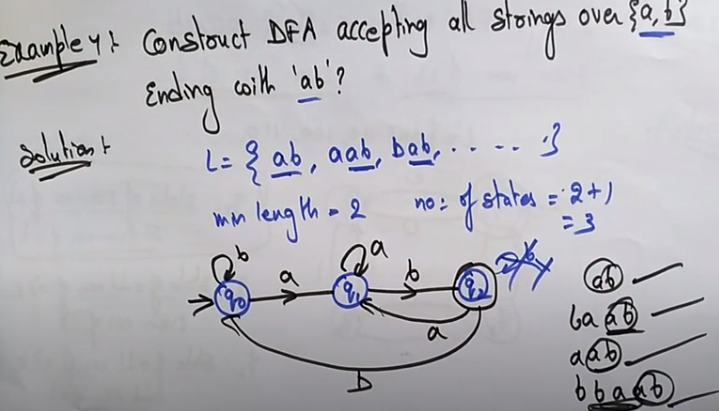 Example 4:
Construct DFA accepting all strings over {a, b}
Ending with 'ab'?
Solution:
L = { ab, aab, bab, ..... }
min length = 2
no: of states = 2+1
= 3
b
a
a
b
q0
q1
q2
a
b
ab
baab
aab
bbaab